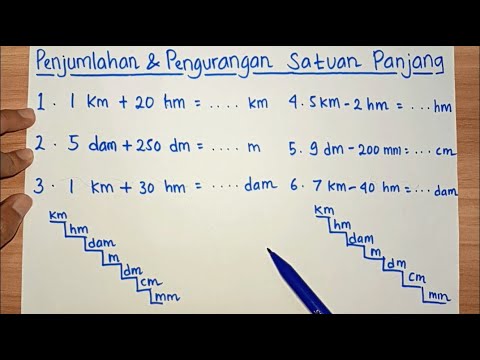 Penjumlahan & Pengurangan Satuan Panjang
1. 1 km + 20 hm = .... km
2. 5 dam + 250 dm = .... m
3. 1 km + 30 hm = .... dam
4. 5 km - 2 hm = ... hm
5. 9 dm - 200 mm = ... cm
6. 7 km - 40 hm = ... dam
km
hm
dam
m
dm
cm
mm
km
hm
dam
m
dm
cm
mm